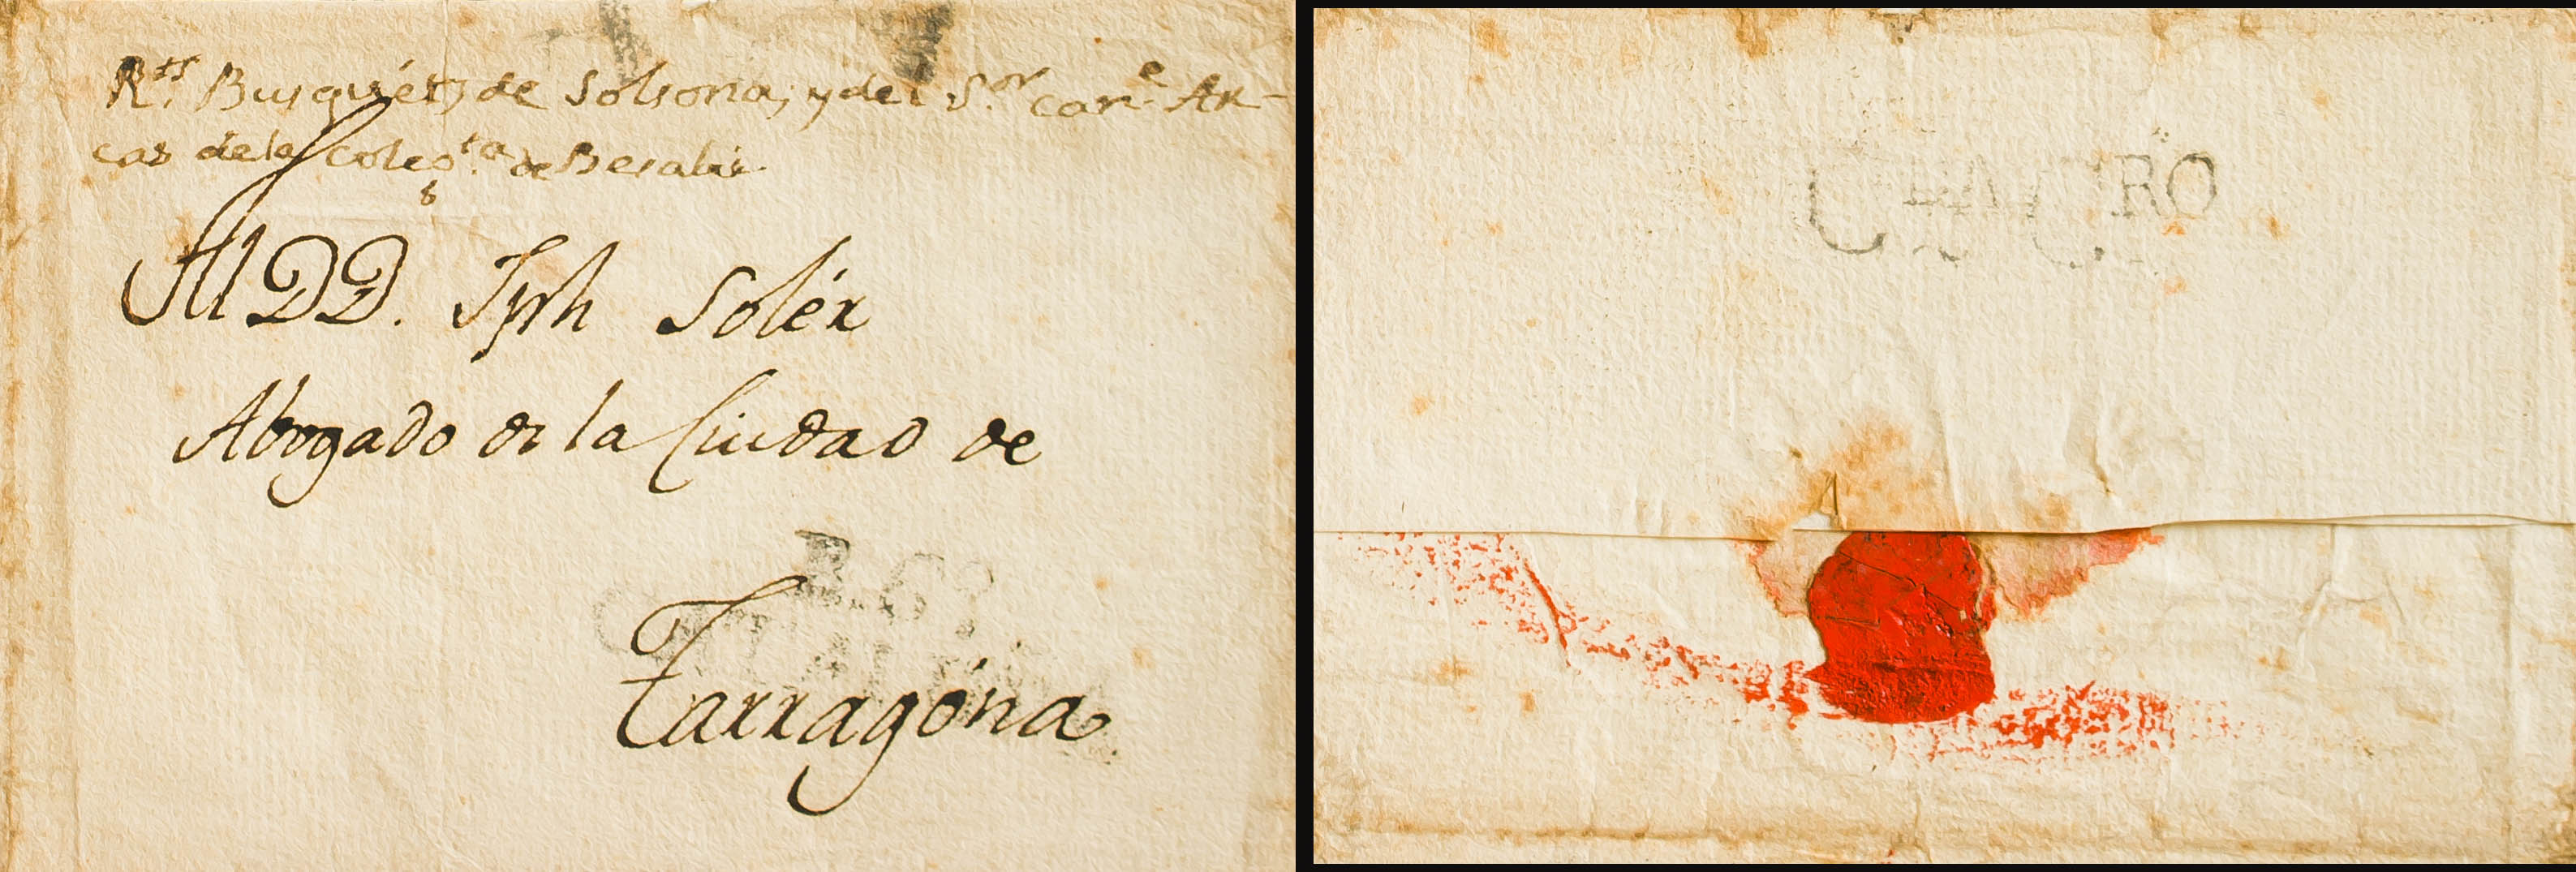 R.ts Busquéts de Solsona, y del S.or Can.e Ar-
cas de la Coleg.ta de Besalú
Al DD. Jph Solér
Abogado de la Ciudad de
Tarragóna